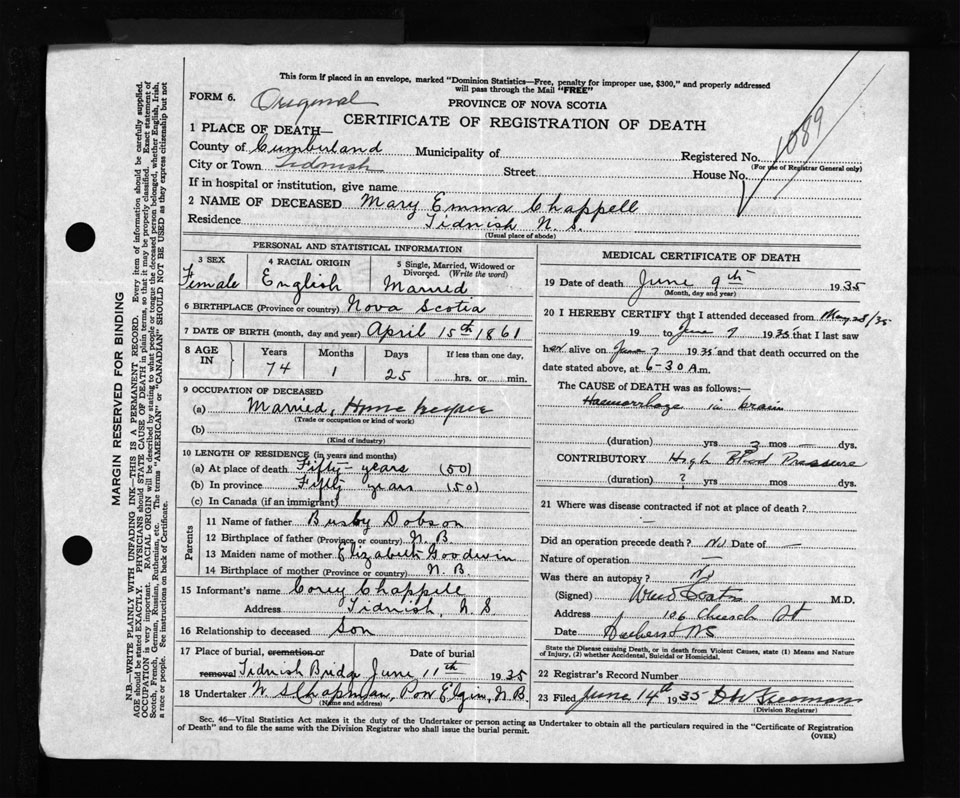 This form if placed in an envelope, marked "Dominion Statistics—Free, penalty for improper use, $300," and properly addressed
will pass through the Mail "FREE"
FORM 6. Original
PROVINCE OF NOVA SCOTIA
CERTIFICATE OF REGISTRATION OF DEATH
1089
1 PLACE OF DEATH—
County of Cumberland Municipality of Registered No.
(For use of Registrar General only)
City or Town Tidnish Street House No.
If in hospital or institution, give name
2 NAME OF DECEASED Mary Emma Chappell
Residence Tidnish N. S.
(Usual place of abode)
PERSONAL AND STATISTICAL INFORMATION
3 SEX 4 RACIAL ORIGIN 5 Single, Married, Widowed or
Divorced. (Write the word)
Female English Married
6 BIRTHPLACE (Province or country) Nova Scotia
7 DATE OF BIRTH (month, day and year) April 15th 1861
8 AGE IN Years Months Days If less than one day,
74 1 25 hrs. or min.
9 OCCUPATION OF DECEASED
(a) Married, Home keeper
(Trade or occupation or kind of work)
(b)
(Kind of industry)
10 LENGTH OF RESIDENCE (in years and months)
(a) At place of death Fifty- years (50)
(b) In province Fifty years (50)
(c) In Canada (if an immigrant)
Parents
11 Name of father Busby Dobson
12 Birthplace of father (Province or country) N. B.
13 Maiden name of mother Elizabeth Goodwin
14 Birthplace of mother (Province or country) N. B.
15 Informant's name Corey Chappell
Address Tidnish, N. S
16 Relationship to deceased Son
17 Place of burial, cremation or Date of burial
removal Tidnish Bridge June 11th 1935
18 Undertaker W. S Chapman, Port Elgin, N. B.
(Name and address)
MEDICAL CERTIFICATE OF DEATH
19 Date of death June 9th 1935
(Month, day and year)
20 I HEREBY CERTIFY that I attended deceased from May 28/35
19 to June 7 1935 that I last saw
her alive on June 7 1935 and that death occurred on
date stated above, at 6-30 A.m.
The CAUSE of DEATH was as follows:—
Haemorrhage in brain
(duration) yrs 3 mos — dys.
CONTRIBUTORY High Blood Pressure
(duration) ? yrs mos dys.
21 Where was disease contracted if not at place of death?
—
Did an operation precede death? No Date of —
Nature of operation —
Was there an autopsy? No
(Signed) M.D.
Address 106 Church St
Date Amherst NS
State the Disease causing Death, or in death from Violent Causes, state (1) Means and Nature
of Injury, (2) whether Accidental, Suicidal or Homicidal.
22 Registrar's Record Number
23 Filed June 14th 1935
(Division Registrar)
Sec. 46—Vital Statistics Act makes it the duty of the Undertaker or person acting as Undertaker to obtain all the particulars required in the "Certificate of Registration
of Death" and to file the same with the Division Registrar who shall issue the burial permit.
(OVER)
MARGIN RESERVED FOR BINDING
N.B.—WRITE PLAINLY WITH UNFADING INK—THIS IS A PERMANENT RECORD. Every item of information should be carefully supplied.
AGE should be stated EXACTLY. PHYSICIANS should STATE CAUSE OF DEATH in plain terms, so that it may be properly classified. Exact statement of
OCCUPATION is very important. RACIAL ORIGIN will be described by stating to what people or tongue the deceased person belonged, whether English, Irish,
Scotch, French, German, Russian, Ruthenian, etc. The terms "AMERICAN" or "CANADIAN" SHOULD NOT BE USED as they express citizenship but not
a race or people. See instructions on back of Certificate.